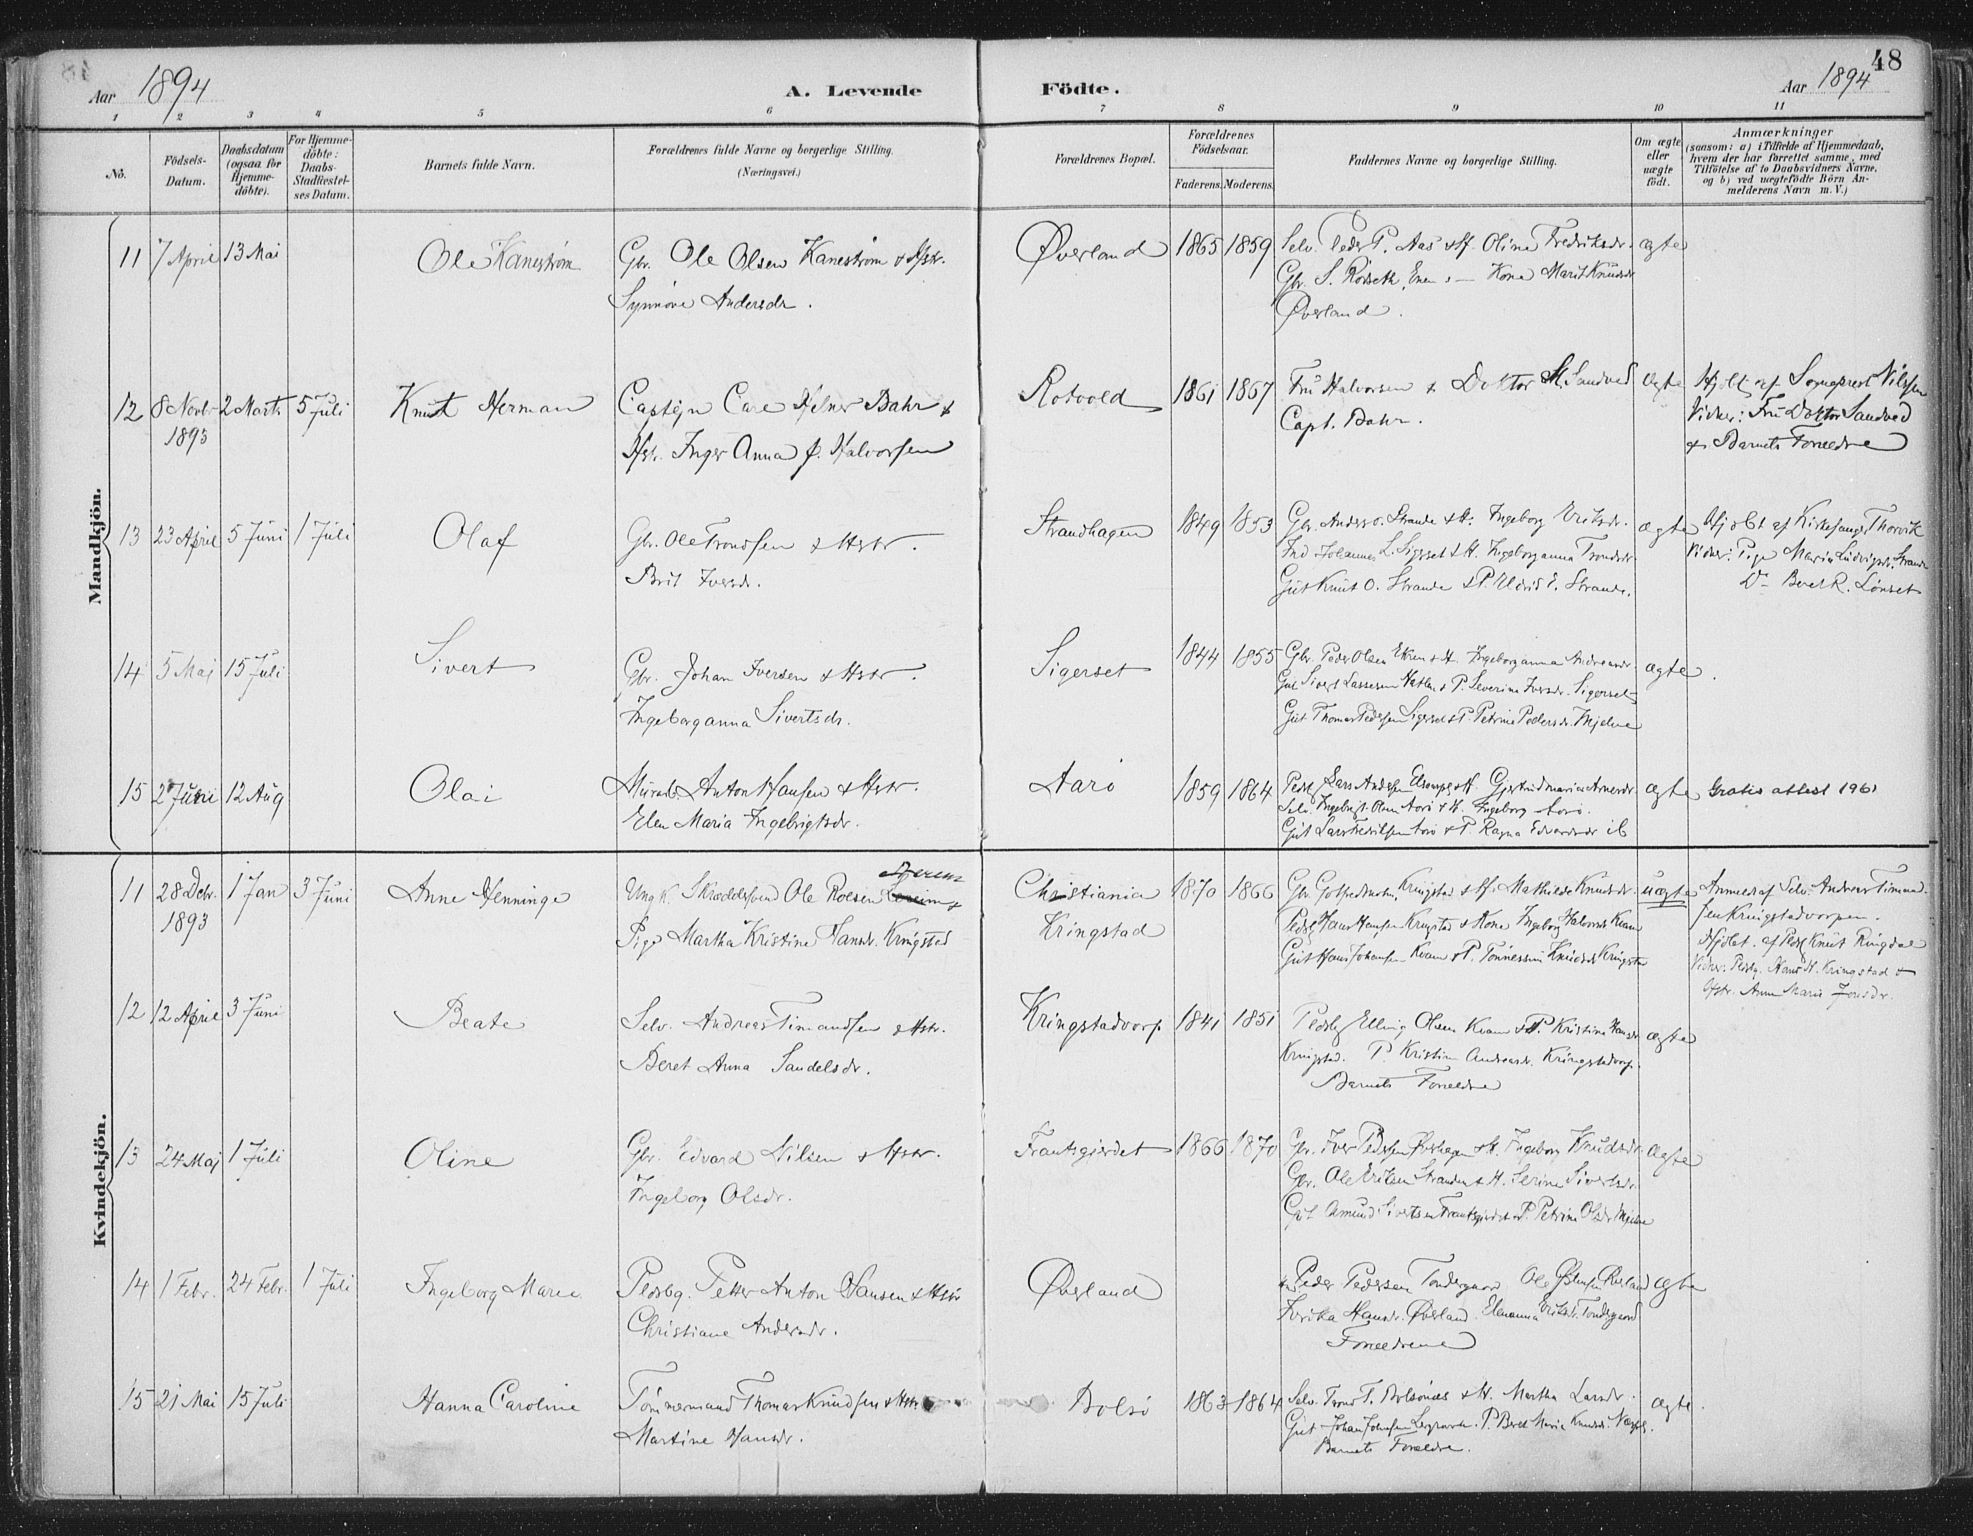 48
Aar 1894
A. Levende Födte.
Aar 1894
1 2 3 4 5 6 7 8 9 10 11
No.
Födsels-Datum.
Daabsdatum (ogsaa for Hjemme-döbte).
For Hjemme-döbte: Daabs-Stadfæstel-ses Datum.
Barnets fulde Navn.
Forældrenes fulde Navne og borgerlige Stilling.
(Næringsvei.)
Forældrenes Bopæl.
Forældrenes Födselsaar.
Faderens. Moderens.
Faddernes Navne og borgerlige Stilling.
Om ægte eller uægte födt.
Anmærkninger
(saasom: a) i Tilfælde af Hjemmedaab, hvem der har forrettet samme, med Tilföielse af to Daabsvidners Navne, og b) ved uægtefödte Börn An-melderens Navn m. V.)
Mandkjön.
11 7 April 13 Mai Ole Kanestrøm Gbr. Ole Olsen Kanestrøm & Hstr. Øverland 1865 1859 Selv. Peder P. Aas & H. Oline Fredriksdr. ægte
Synnöve Andersdr. Gbr. S. Rödseth, Kone Marit Knudsdr
Øverland.
12 8 Novbr. 2 Marts 5 Juli Knut Herman Captejn Bahr & Rotvold 1861 1867 Fru Halvorsen & Doktor Sandved ægte Hjdbt af Sogneprest Nilssen
1893 Hstr. Inger Anna f. Halvorsen Capt. Bahr. Vidner: Fru Doktor Sandved
& Barnets Forældre
13 23 April 5 Juni 1 Juli Olaf Gbr. Ole Trondsen & Hstr. Strandhagen 1849 1853 Gbr. Anders O. Strande & H. Ingeborg Eriksdr. ægte Hjdbt af Kirkesanger Thorvik
Brit Iversdr. Johannes L. Sigerset & H. Ingeborganna Trondsdr Vidner: Pige Maria Ludvigsdr. Strande
Gut Knut O. Strande & P. Eldrid E. Strande. Do Beret K. Lönset
14 5 Maj 15 Juli Sivert Gbr. Johan Iversen & Hstr. Sigerset 1844 1855 Gbr. Peder Olsen & H. Ingeborganna ægte.
Ingeborganna Sivertsdr. Gut Sivert Lassesen & P. Severine Iversdr. Sigerset
Gut Thomas Pedersen Sigerset & P. Petrine Pedersdr. Mjelve
15 2 Juni 12 Aug Olai Murmb. Anton Hansen & Hstr. Aarö 1859 1864 Lars Andersen & H. Gjertrudmaria ægte Gratis attest 1961
Elen Maria Ingebrigtsdr. Selv. Ingebrigt Olsen Aarö & H. Ingeborg Aarö.
Gut Lars Aarö & P. Ragna Edvardsdr ib
Kvindekjön.
11 28 Decbr. 1 Jan 3 Juni Anne Henninge Ungk. Skræddersvend Ole Roesen Christiania 1870 1866 Gbr. Kringstad & H. Mathilde Knutsdr. uægte Anmeldt af Selv. Andreas Timand-
1893 Pige Martha Kristine Hansdr. Kringstad Kringstad Hans Hansen Kringstad & Kone Ingeborg Halvorsdr Kvam sen Kringstadvorpen.
Gut Hans Johansen Kvam & P. Tönnessine Knudsdr Kringstad Hjdbt. af Knut Ringdal
Vidner: Hans H. Kringstad &
Hstr. Anne Marie Jonsdr.
12 12 April 3 Juni Beate Selv. Andreas Timandsen & Hstr. Kringstadvorp. 1841 1851 Elling Olsen Kvam & P. Kristine Hansdr ægte
Beret Anna Sandelsdr. Kringstad. P. Kristine Andreasdr. Kringstadvorp.
Barnets Forældre
13 24 Maj 1 Juli Oline Gbr. Edvard Nilsen & Hstr. Frantsgjerdet 1866 1870 Gbr. Iver Pedersen & H. Ingeborg Knudsdr. ægte
Ingeborg Olsdr. Gbr. Ole Eriksen Stranden & H. Serine Sivertsdr.
Gut Amund Sivertsen Frantsgjerdet & P. Petrine Olsdr Mjelve
14 1 Febr. 24 Febr. 1 Juli Ingeborg Marie Pedsbg. Petter Anton Hansen & Hstr Øverland Peder Pedersen Tøndergaard Ole Østensen Øverland ægte
Christiane Andersdr. Hansdr. Øverland. Elenanna Eriksdr. Tøndergaard
Forældrene
15 21 Mai 15 Juli Hanna Caroline Tömmermand Thomas Knudsen & Hstr Bolsö 1863 1864 Selv. Trond T. Bolsönæs & H. Martha Larsdr. ægte.
Martine Hansdr. Gut Johan Johnsen P. Beret Marie Knudsdr
Barnets Forældre.